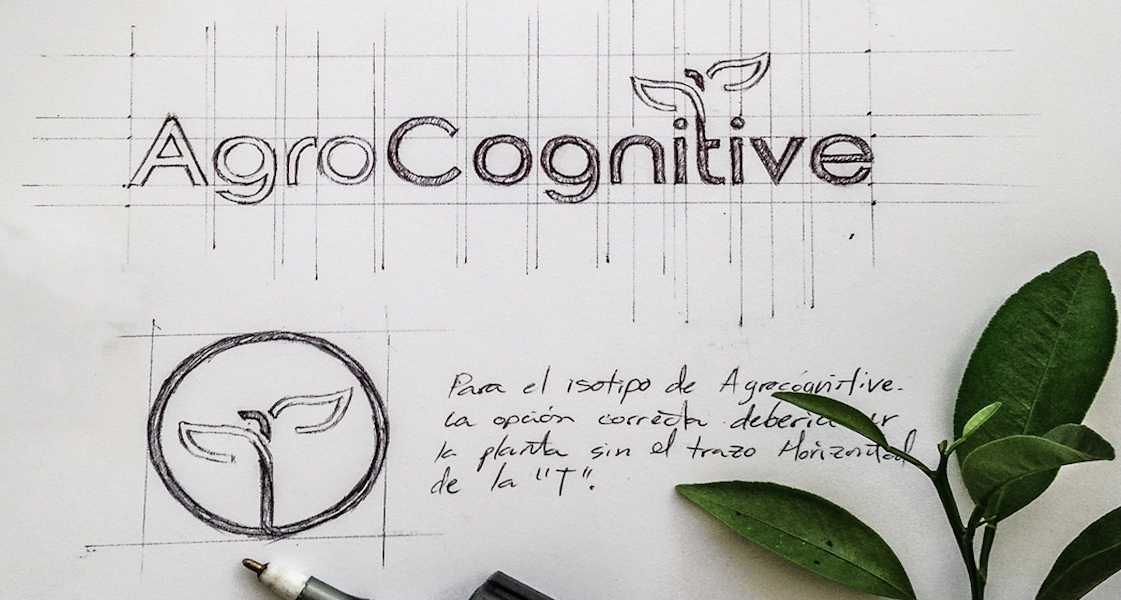 AgroCognitive
Para el isotipo de Agrocógnitive.
La opción correcta debería ir
la planta sin el trazo Horizontal
de la "T".